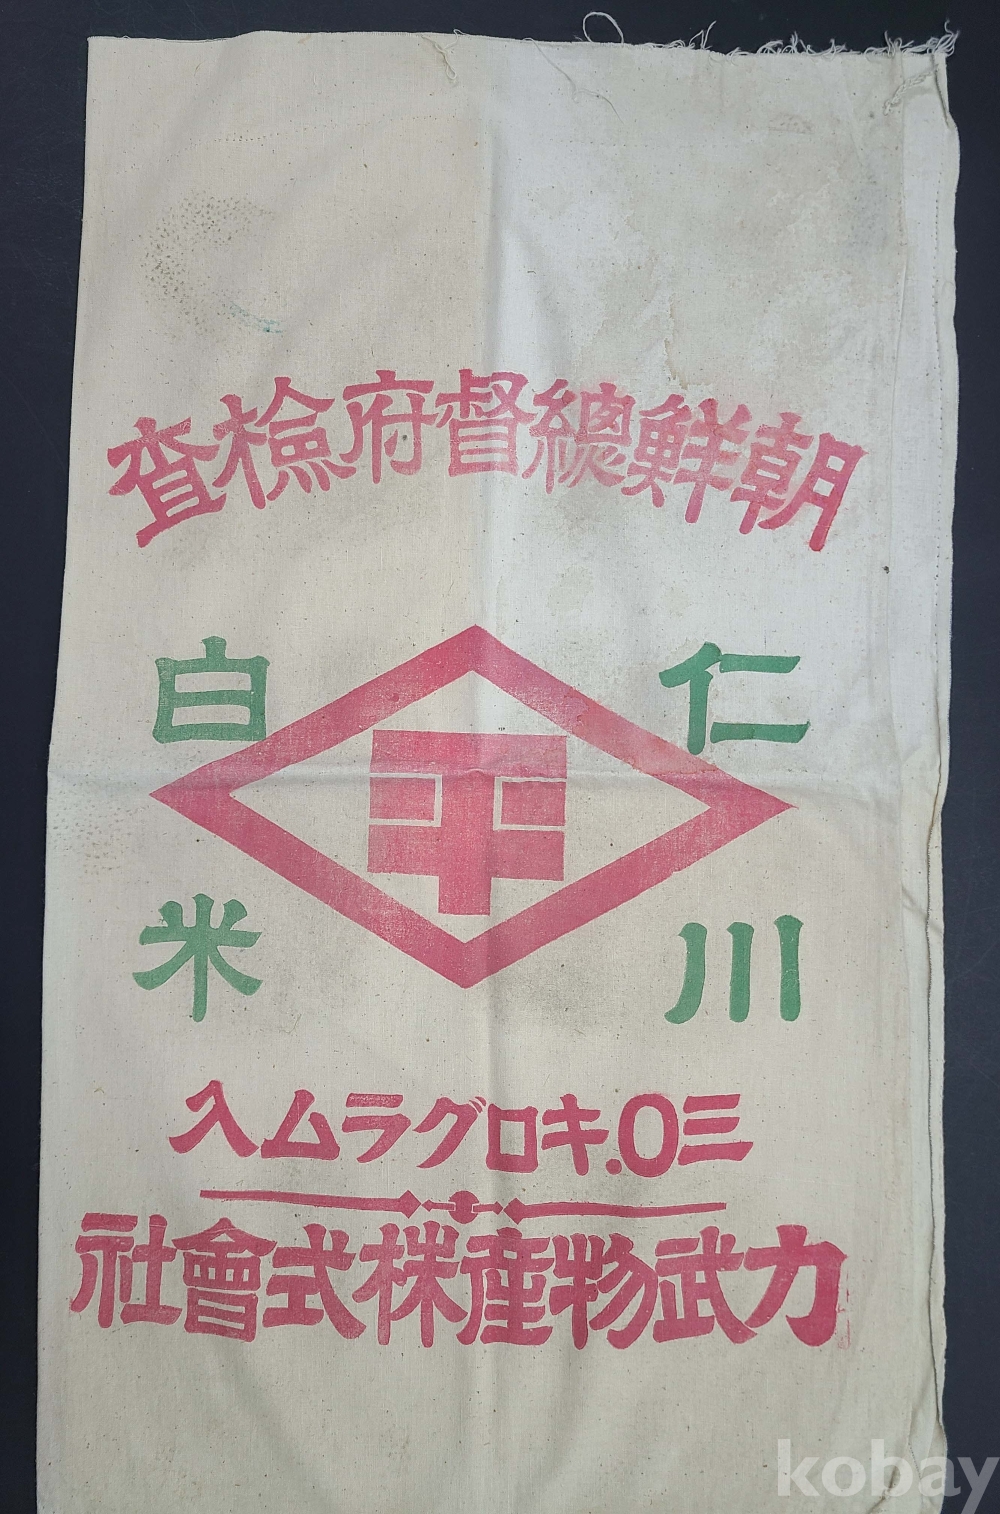 朝鮮總督府檢查
仁川
白米
三〇.キログラム入
力武物產株式會社
kobay